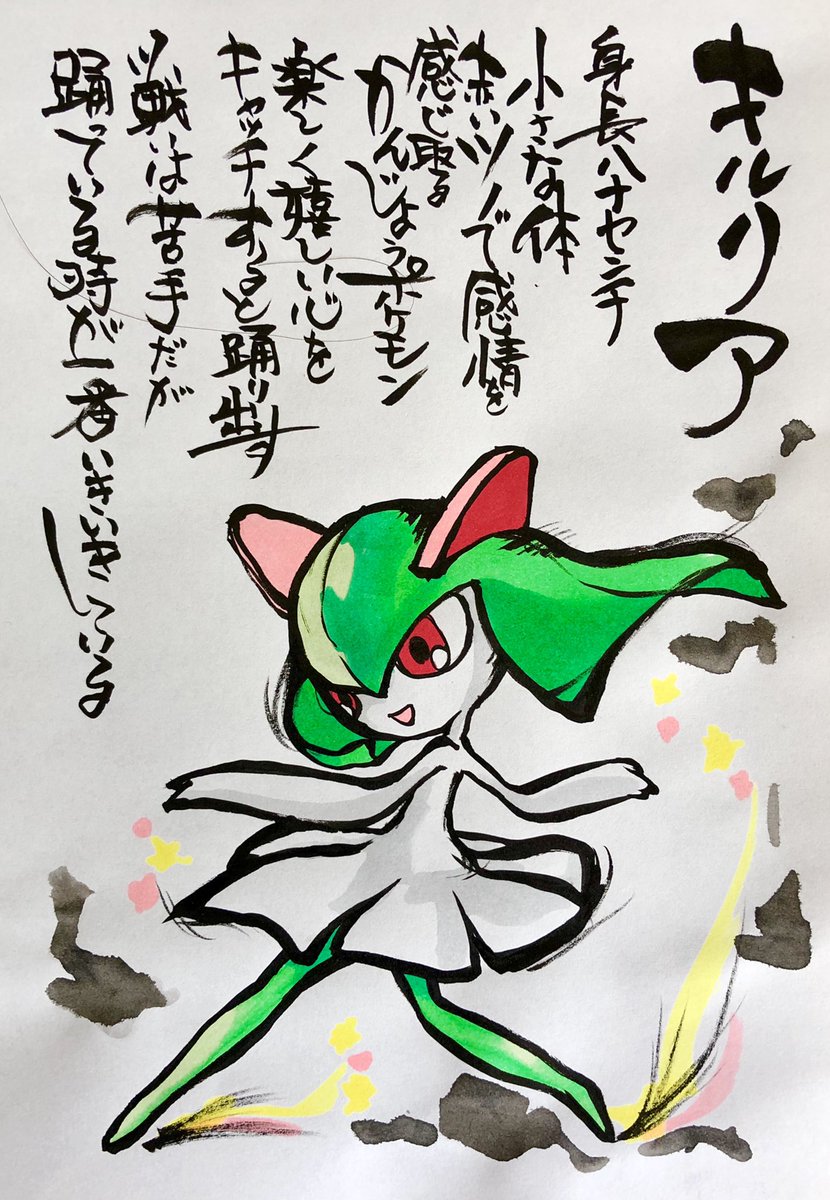 キルリア
身長八十センチ
小さな体
赤いツノで感情を
感じ取る
かんじょうポケモン
楽しく嬉しい心を
キャッチすると踊り出す
戦いは苦手だが
踊っている時が一番いきいきしている